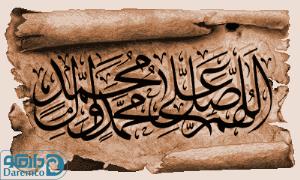 اللهم صل علی محمد و آل محمد
دارمکو
Daremco